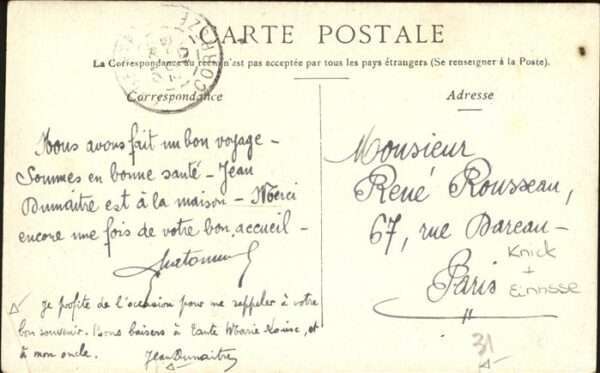 CARTE POSTALE
La Correspondance au recto n'est pas acceptée par tous les pays étrangers (Se renseigner à la Poste).
Correspondance
Nous avons fait un bon voyage -
Sommes en bonne santé - Jean
Dumaitre est à la maison - Merci
encore une fois de votre bon accueil -
Je profite de l'occasion pour me rappeler à votre
bon souvenir. Bons baisers à Tante Marie Louise, et
à mon oncle.
Jean Dumaitre
Adresse
Monsieur
René Rousseau,
67, rue Dareau -
Paris
Knick
+
31